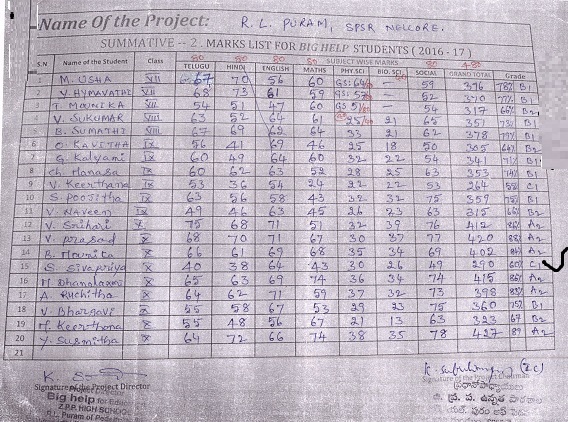 Name Of the Project: R. L. PURAM, SPSR NELLORE.
SUMMATIVE -- 2 . MARKS LIST FOR BIG HELP STUDENTS ( 2016 - 17 )
80 80 80 80 SUBJECT WISE MARKS 80 480
S.N Name of the Student Class TELUGU HINDI ENGLISH MATHS PHY.SCI BIO. SCI SOCIAL GRAND TOTAL Grade
1 M. USHA VII 67 70 56 60 GS: 64 — 59 376 78% B1
2 Y. HYMAVATHI VII 68 73 61 59 GS: 57 — 52 370 77% B1
3 T. MOUNIKA VIII 54 51 47 60 GS 51 — 54 317 66% B2
4 V. SUKUMAR VIII 63 52 64 61 25 21 65 351 73% B1
5 B. SUMATHI VIII 67 69 62 64 33 21 62 378 79% B1
6 O. KAVITHA IX 56 41 69 46 25 18 50 305 64% B2
7 G. Kalyani IX 60 49 64 60 32 22 54 341 71% B1
8 Ch. Manasa IX 60 62 63 52 28 25 63 353 74% B1
9 V. Keerthana IX 53 36 54 24 22 22 53 264 55% C1
10 S. Poojitha IX 63 56 58 43 32 32 75 359 75% B1
11 V. NAVEEN IX 49 46 63 45 26 23 63 315 66% B2
12 V. Srihari X 75 68 71 51 32 39 76 412 86% A2
13 V. prasad X 68 70 71 67 30 37 77 420 88% A2
14 B. Mounika X 66 61 69 68 35 34 69 402 84% A2
15 S. Sivapriya X 40 38 64 43 30 26 49 290 60%
16 M. Dhanalaxmi X 65 63 69 74 36 34 74 415 86% A2
17 A. Ruchitha X 64 62 71 59 37 32 73 398 83% A2
18 V. Bhargavi X 55 58 67 53 29 23 75 360 75% B1
19 M. Keerthana X 55 48 56 67 21 13 63 323 67 B2
20 Y. Susmitha X 64 72 66 74 38 35 78 427 89 A2
21
Signature of the Project Director
Big help for
Z.P.P. HIGH SCHOOL
Puram of
Signature of the
ప్రధానోపాధ్యాయులు
ఉన్నత